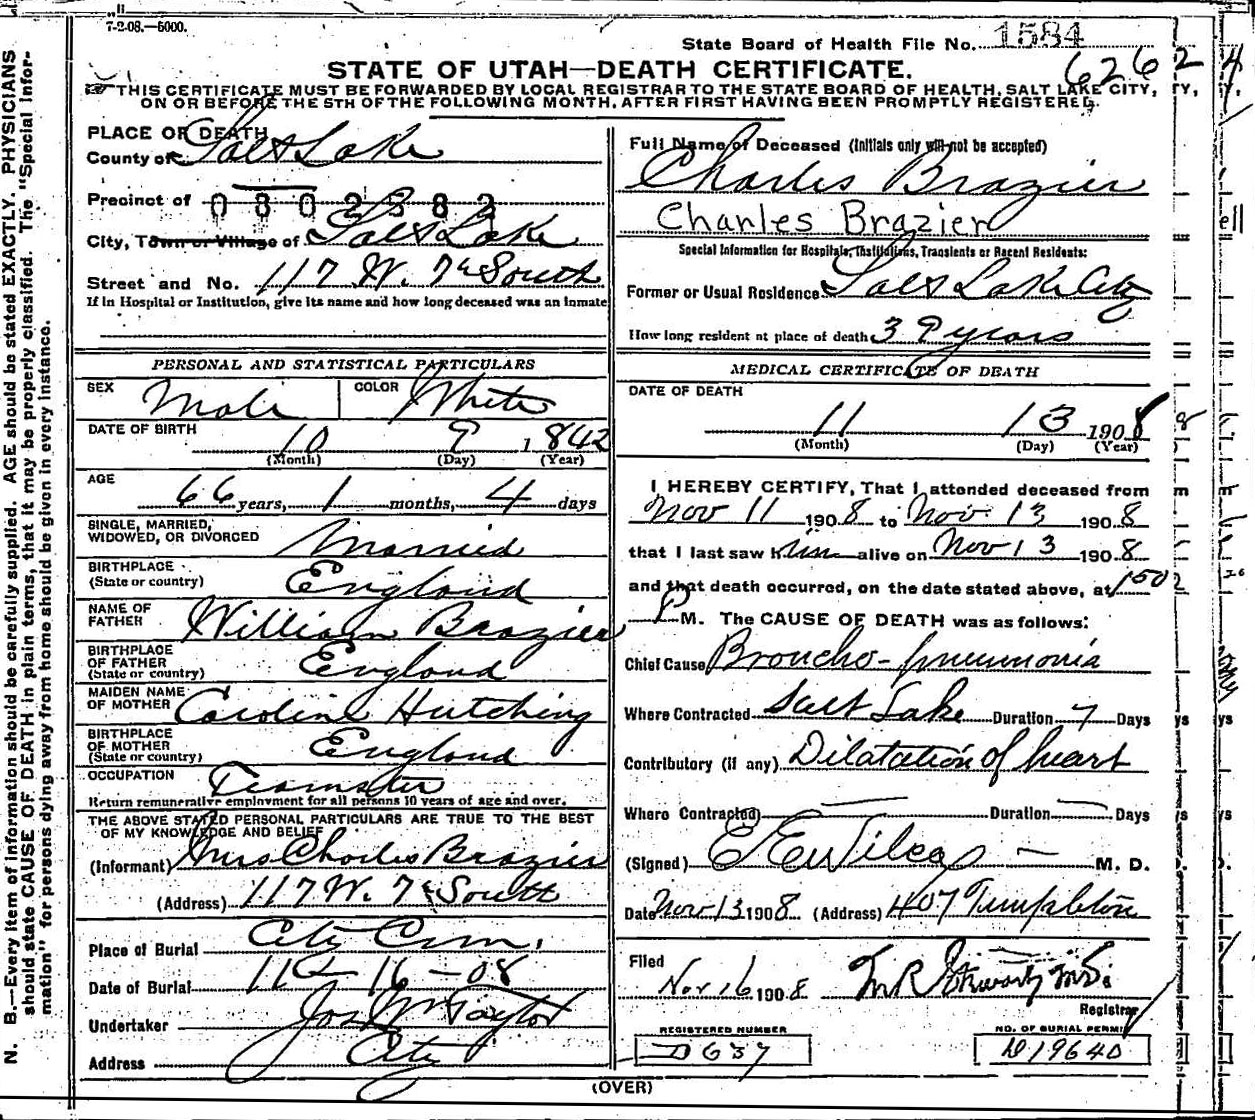 7-2-08.—5000.
State Board of Health File No. 1584
6262
STATE OF UTAH—DEATH CERTIFICATE.
THIS CERTIFICATE MUST BE FORWARDED BY LOCAL REGISTRAR TO THE STATE BOARD OF HEALTH, SALT LAKE CITY,
ON OR BEFORE THE 5TH OF THE FOLLOWING MONTH, AFTER FIRST HAVING BEEN PROMPTLY REGISTERED.
N. B.—Every item of information should be carefully supplied. AGE should be stated EXACTLY. PHYSICIANS
should state CAUSE OF DEATH in plain terms, that it may be properly classified. The "Special Infor-
mation" for persons dying away from home should be given in every instance.
PLACE OF DEATH
County of Salt Lake
Precinct of 0802382
City, Town or Village of Salt Lake
Street and No. 117 W. 7th South
If in Hospital or Institution, give its name and how long deceased was an inmate
PERSONAL AND STATISTICAL PARTICULARS
SEX Male COLOR White
DATE OF BIRTH 10 9 1842
(Month) (Day) (Year)
AGE 66 years, 1 months, 4 days
SINGLE, MARRIED,
WIDOWED, OR DIVORCED Married
BIRTHPLACE
(State or country) England
NAME OF
FATHER William Brazier
BIRTHPLACE
OF FATHER
(State or country) England
MAIDEN NAME
OF MOTHER Caroline Hutching
BIRTHPLACE
OF MOTHER
(State or country) England
OCCUPATION Teamster
Return remunerative employment for all persons 10 years of age and over.
THE ABOVE STATED PERSONAL PARTICULARS ARE TRUE TO THE BEST
OF MY KNOWLEDGE AND BELIEF
(Informant) Mrs Charles Brazier
(Address) 117 W. 7th South
Place of Burial City Cem.
Date of Burial 11 - 16 - 08
Undertaker Jos Wm Taylor
Address City
Full Name of Deceased (Initials only will not be accepted)
Charles Brazier
Charles Brazier
Special Information for Hospitals, Institutions, Transients or Recent Residents:
Former or Usual Residence Salt Lake City
How long resident at place of death 39 years
MEDICAL CERTIFICATE OF DEATH
DATE OF DEATH
11 13 1908
(Month) (Day) (Year)
I HEREBY CERTIFY, That I attended deceased from
Nov 11 1908 to Nov. 13 1908
that I last saw him alive on Nov 13 1908
and that death occurred, on the date stated above, at 150
P M. The CAUSE OF DEATH was as follows:
Chief Cause Broncho-pneumonia
Where Contracted Salt Lake Duration 7 Days
Contributory (if any) Dilatation of heart
Where Contracted — Duration — Days
(Signed) E E Wilcox — M. D.
Date Nov 13 1908 (Address) 407 Templeton
Filed
Nov 16 1908 M R Stewart M.D.
Registrar
REGISTERED NUMBER
D 637
NO. OF BURIAL PERMIT
D 19640
(OVER)